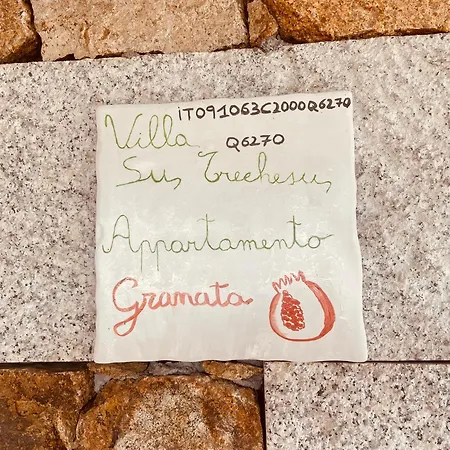 IT091063C2000Q6270
Villa
Q6270
Su Trechesu
Appartamento
Granata